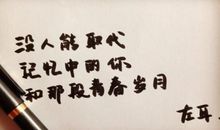 没人能取代
记忆中的你
和那段青春岁月
左耳